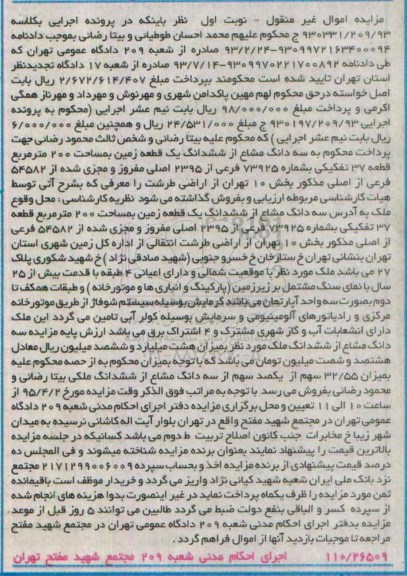 مزایده اموال غیر منقول - نوبت اول نظر باینکه در پرونده اجرایی بکلاسه
۹۳۰۳۳۱/۲۰۹/۹۳ ج محکوم علیهم محمد احسان طوطیانی و بیتا رضانی بموجب دادنامه
۹۳۰۹۹۷۲۱۶۳۴۰۰۰۹۴-۹۳/۲/۲۴ صادره از شعبه ۲۰۹ دادگاه عمومی تهران که
طی دادنامه ۹۳۰۹۹۷۰۲۲۱۷۰۰۸۹۲-۹۳/۷/۱۴ صادره از شعبه ۱۷ دادگاه تجدیدنظر
استان تهران تایید شده است محکومند بپرداخت مبلغ ۲/۶۷۲/۶۱۴/۴۰۷ ریال بابت
اصل خواسته درحق محکوم لهم مهین پاکدامن شهری و مهرنوش و مهرداد و مهرناز همگی
اکرمی و پرداخت مبلغ ۹۸/۰۰۰/۰۰۰ ریال بابت نیم عشر اجرایی (محکوم به پرونده
اجرایی ۹۳۰۱۹۷/۲۰۹/۹۳ ج مبلغ ۲۴/۵۳۱/۰۰۰ ریال و همچنین مبلغ ۶/۰۰۰/۰۰۰
ریال بابت نیم عشر اجرایی ) که محکوم علیه بیتا رضانی و شخص ثالث محمود رضانی جهت
پرداخت محکوم به سه دانگ مشاع از ششدانگ یک قطعه زمین بمساحت ۲۰۰ مترمربع
قطعه ۳۷ تفکیکی بشماره ۷۳۹۲۵ فرعی از ۲۳۹۵ اصلی مفروز و مجزی شده از ۵۴۵۸۲
فرعی از اصلی مذکور بخش ۱۰ تهران از اراضی طرشت را معرفی که بشرح آتی توسط
هیات کارشناسی مربوطه ارزیابی و بفروش گذاشته می شود نظریه کارشناسی : محل وقوع
ملک به آدرس سه دانگ مشاع از ششدانگ یک قطعه زمین بمساحت ۲۰۰ مترمربع قطعه
۳۷ تفکیکی بشماره ۷۳۹۲۵ فرعی از ۲۳۹۵ اصلی مفروز و مجزی شده از ۵۴۵۸۲ فرعی
از اصلی مذکور بخش ۱۰ تهران از اراضی طرشت انتقالی از اداره کل زمین شهری استان
تهران بنشانی تهران خ ستارخان خ خسرو جنوبی (شهید صادقی نژاد ) خ شهید شکوری پلاک
۲۷ می باشد ملک مورد نظر با موقعیت شمالی و دارای اعیانی ۴ طبقه با قدمت بیش از ۲۵
سال با نمای سنگ مشتمل بر زیرزمین (پارکینگ و انباری ها و موتورخانه ) و طبقات همکف تا
دوم بصورت سه واحد آپارتمان می باشد گرمایش بوسیله سیستم شوفاژ از طریق موتورخانه
مرکزی و رادیاتورهای آلومینیومی و سرمایش بوسیله کولر آبی تامین می گردد این ملک
دارای انشعابات آب و گاز شهری مشترک و ۴ اشتراک برق می باشد ارزش پایه مزایده سه
دانگ مشاع از ششدانگ ملک مورد نظر بمیزان هشت میلیارد و ششصد میلیون ریال معادل
هشتصد و شصت میلیون تومان می باشد که با توجه بمیزان محکوم به از حصه محکوم علیه
بمیزان ۳۲/۵۵ سهم از یکصد سهم از سه دانگ مشاع از ششدانگ ملکی بیتا رضانی و
محمود رضانی بفروش می رسد با توجه به مراتب فوق الذکر وقت مزایده مورخ ۹۵/۴/۲ از
ساعت ۱۰ الی ۱۱ تعیین و محل برگزاری مزایده دفتر اجرای احکام مدنی شعبه ۲۰۹ دادگاه
عمومی تهران در مجتمع شهید مفتح واقع در تهران بلوار آیت اله کاشانی نرسیده به میدان
شهر زیبا خ مخابرات جنب کانون اصلاح تربیت ط دوم می باشد کسانیکه در جلسه مزایده
بالاترین قیمت را پیشنهاد نمایند بعنوان برنده مزایده شناخته میشوند و فی المجلس ده
درصد قیمت پیشنهادی از برنده مزایده اخذ و بحساب سپرده ۲۱۷۱۲۹۹۰۰۶۰۰۹ مجتمع
نزد بانک ملی ایران شعبه شهید کیانی نژاد واریز می گردد و خریدار موظف است باقیمانده
ثمن مورد مزایده را ظرف یکماه پرداخت نماید در غیر اینصورت بدوا هزینه های انجام شده
از سپرده کسر و الباقی بنفع دولت ضبط می گردد طالبین می توانند ۵ روز قبل از موعد
مزایده بدفتر اجرای احکام مدنی شعبه ۲۰۹ دادگاه عمومی تهران در مجتمع شهید مفتح
مراجعه تا موجبات بازدید آنها از اموال فراهم گردد .
۱۱۰/۲۶۵۰۹ اجرای احکام مدنی شعبه ۲۰۹ مجتمع شهید مفتح تهران